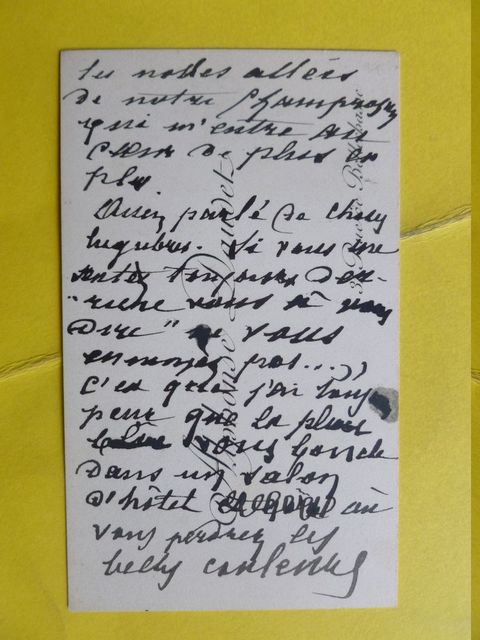 les nobles allées
de notre Champrosay
qui m'entre au
cœur de plus en
plus.
Assez parlé de choses
lugubres. Si vous me
sentez toujours der-
"rière vous à vous
Dire" ne vous
ennuyez pas...,
c'est que j'ai
peur que la pluie
vous
Dans un salon
D'hôtel où
vous perdrez les
belles couleurs
Alphonse Daudet
31, Rue de Bellechasse